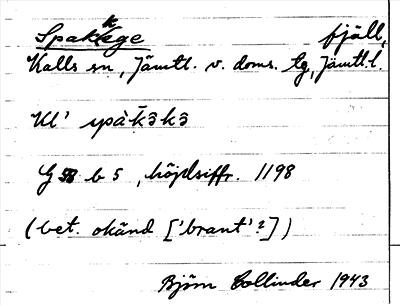 Spakkege fjäll,
Kalls sn, Jämtl. v. doms. tg, Jämtl. l.
Ul' spàk̄ɜkɜ
G 58 b 5, höjdsiffr. 1198
(bet. okänd ['brant'?])
Björn Collinder 1943